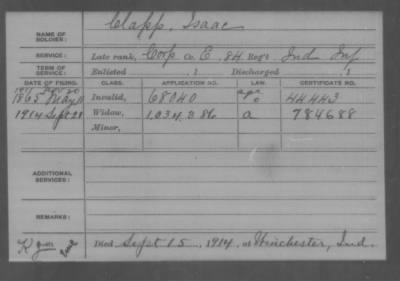 NAME OF SOLDIER: Clapp, Isaac
SERVICE: Late rank, Corp Co. E, 84 Reg't Ind Inf
TERM OF SERVICE: Enlisted , 1 Discharged , 1
DATE OF FILING. CLASS. APPLICATION NO. LAW. CERTIFICATE NO.
1865 May Invalid, 68040 44443
1914 Sept 21 Widow, 1,034,286 a 784688
Minor,
ADDITIONAL SERVICES:
REMARKS:
Died Sept 15, 1914, at Winchester, Ind.